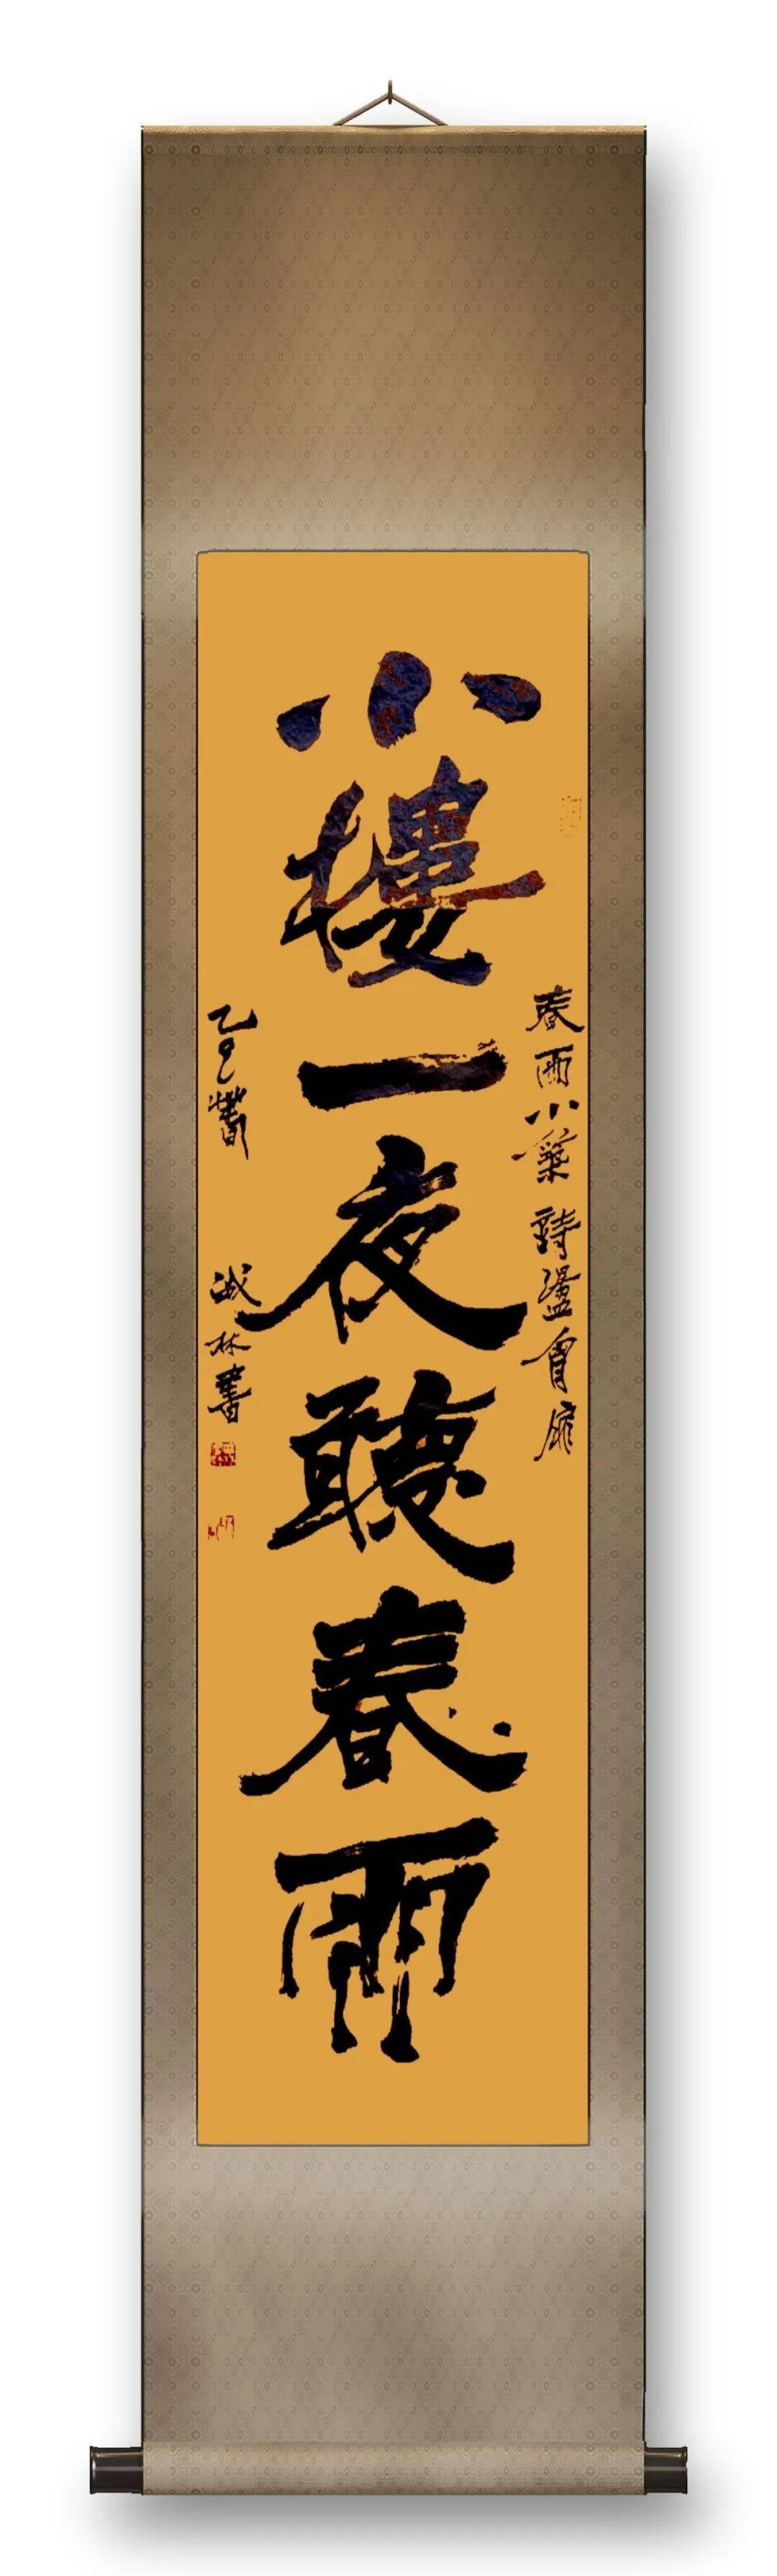 春雨小築 詩盪會
小樓一夜聽春雨
乙巳 誠林書